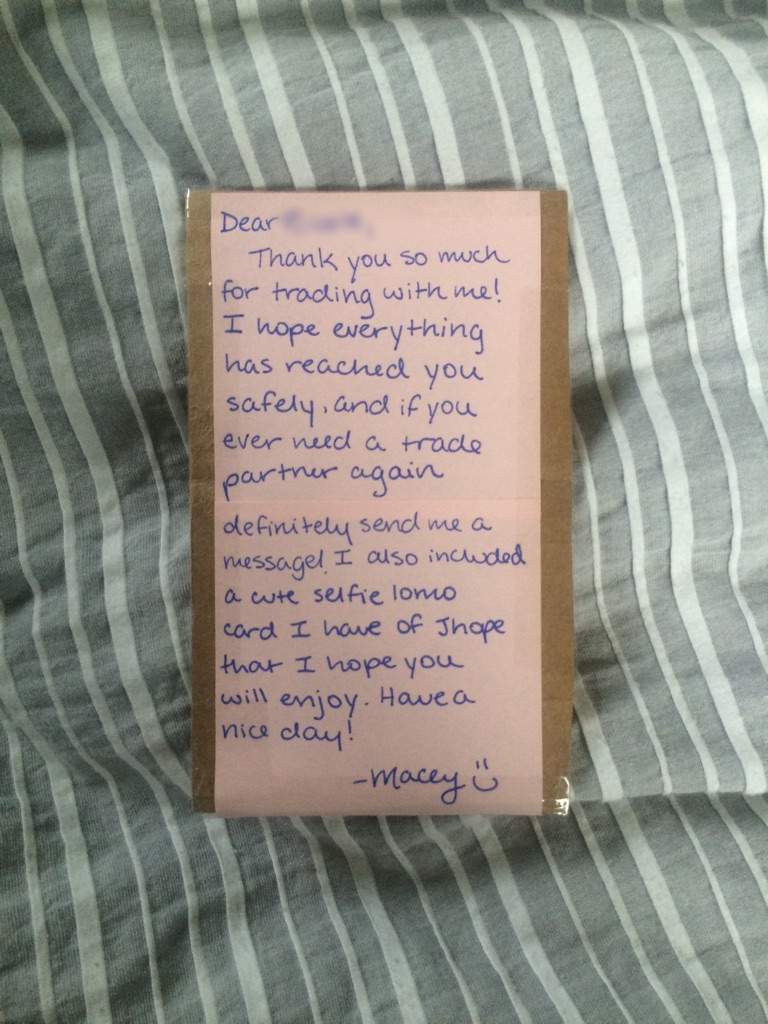 Dear
Thank you so much
for trading with me!
I hope everything
has reached you
safely, and if you
ever need a trade
partner again
definitely send me a
message! I also included
a cute selfie lomo
card I have of Jhope
that I hope you
will enjoy. Have a
nice day!
-Macey